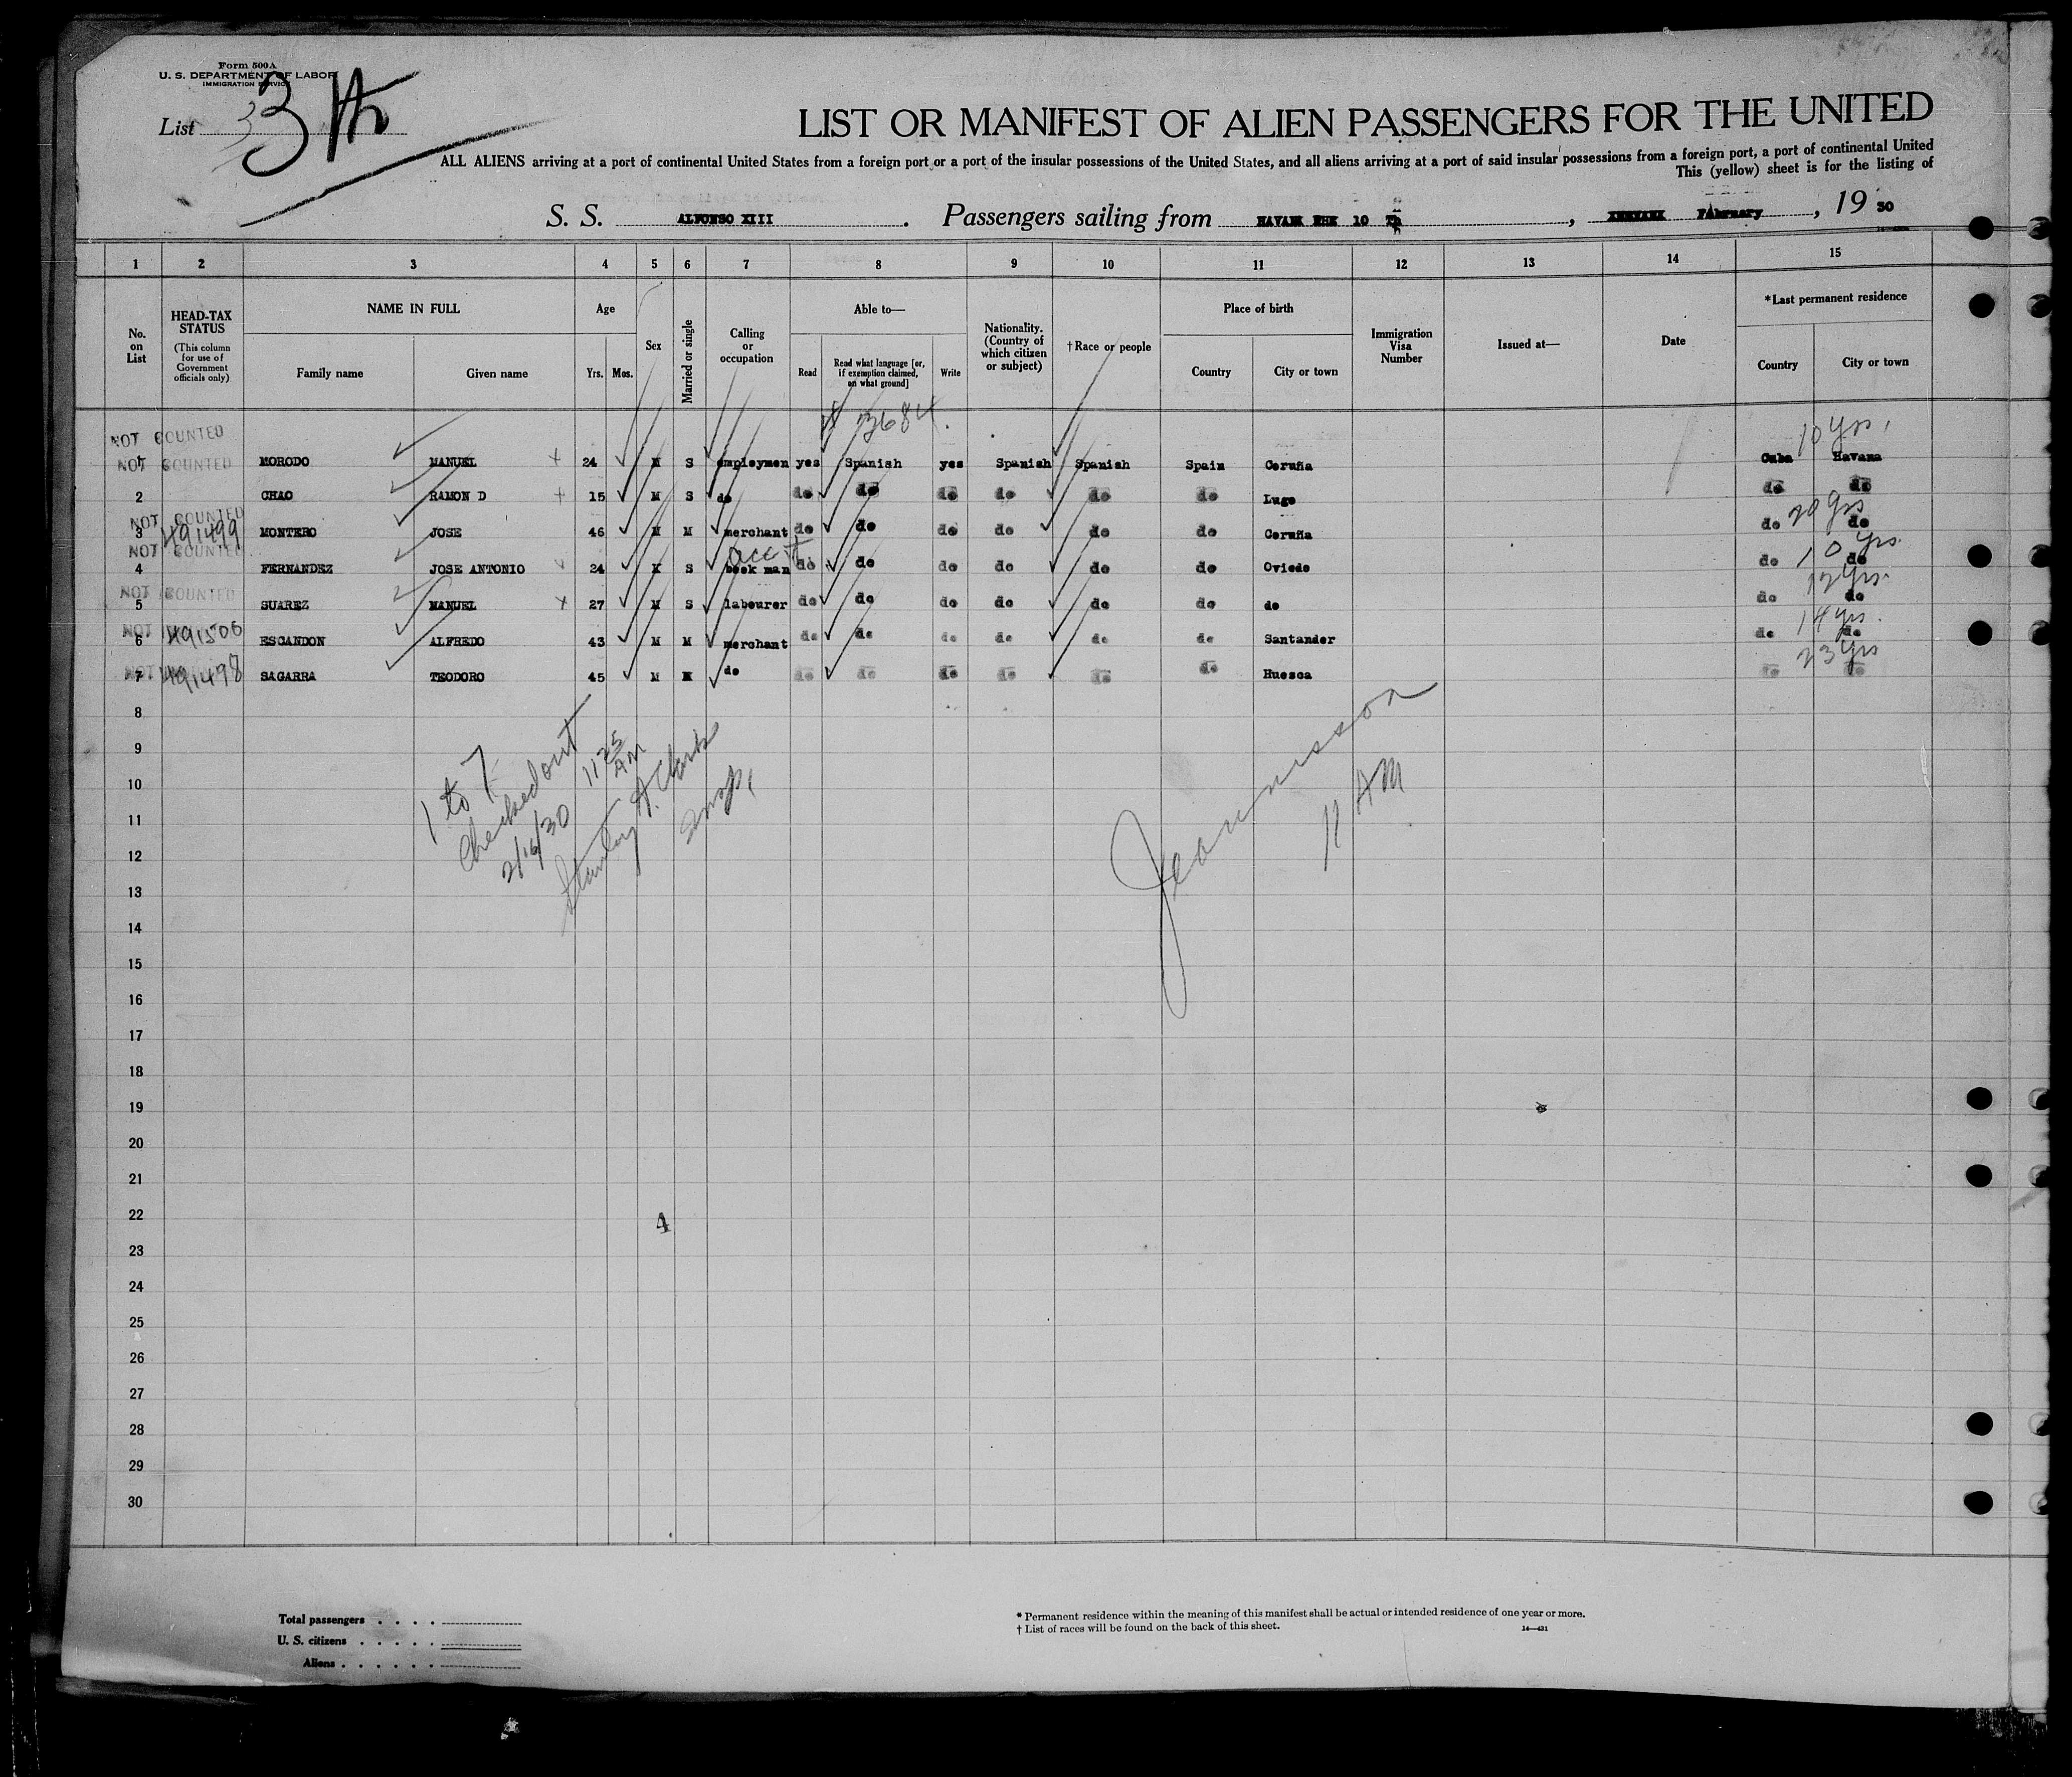 Form 500A
U. S. DEPARTMENT OF LABOR
IMMIGRATION SERVICE
List 3 th
LIST OR MANIFEST OF ALIEN PASSENGERS FOR THE UNITED
ALL ALIENS arriving at a port of continental United States from a foreign port or a port of the insular possessions of the United States, and all aliens arriving at a port of said insular possessions from a foreign port, a port of continental United
This (yellow) sheet is for the listing of
S. S. ALFONSO XIII . Passengers sailing from HAVANA THE 10 Th , February , 19 30
1 2 3 4 5 6 7 8 9 10 11 12 13 14 15
No. on List
HEAD-TAX STATUS
(This column for use of Government officials only)
NAME IN FULL
Family name Given name
Age
Yrs. Mos.
Sex
Married or single
Calling or occupation
Able to—
Read
Read what language [or, if exemption claimed, on what ground]
Write
Nationality. (Country of which citizen or subject)
†Race or people
Place of birth
Country City or town
Immigration Visa Number
Issued at—
Date
*Last permanent residence
Country City or town
# 3684.
NOT COUNTED 10 yrs.
1 NOT COUNTED MORODO MANUEL 24 M S employmen yes Spanish yes Spanish Spanish Spain Coruña Cuba Havana
2 CHAO RAMON D 15 M S do do do do do do do Lugo do do
NOT COUNTED 20 yrs
3 491499 MONTERO JOSE 46 M M merchant do do do do do do Coruña do do
NOT COUNTED acct 10 yrs.
4 FERNANDEZ JOSE ANTONIO 24 M S book man do do do do do do Oviedo do do
NOT COUNTED 12 yrs.
5 SUAREZ MANUEL 27 M S labourer do do do do do do do do do
14 yrs.
6 491506 ESCANDON ALFREDO 43 M M merchant do do do do do do Santander do do
23 yrs
7 491498 SAGARRA TEODORO 45 M M do do do do do do do Huesca do do
8
9
10
11
12
13
14
15
16
17
18
19
20
21
22 4
23
24
25
26
27
28
29
30
1 to 7
Checked out
2/16/30 11 25 AM
Stanley A. Clark
Insp.
11 AM
Total passengers . . . .
U. S. citizens . . . . .
Aliens . . . . . .
* Permanent residence within the meaning of this manifest shall be actual or intended residence of one year or more.
† List of races will be found on the back of this sheet.
14—431